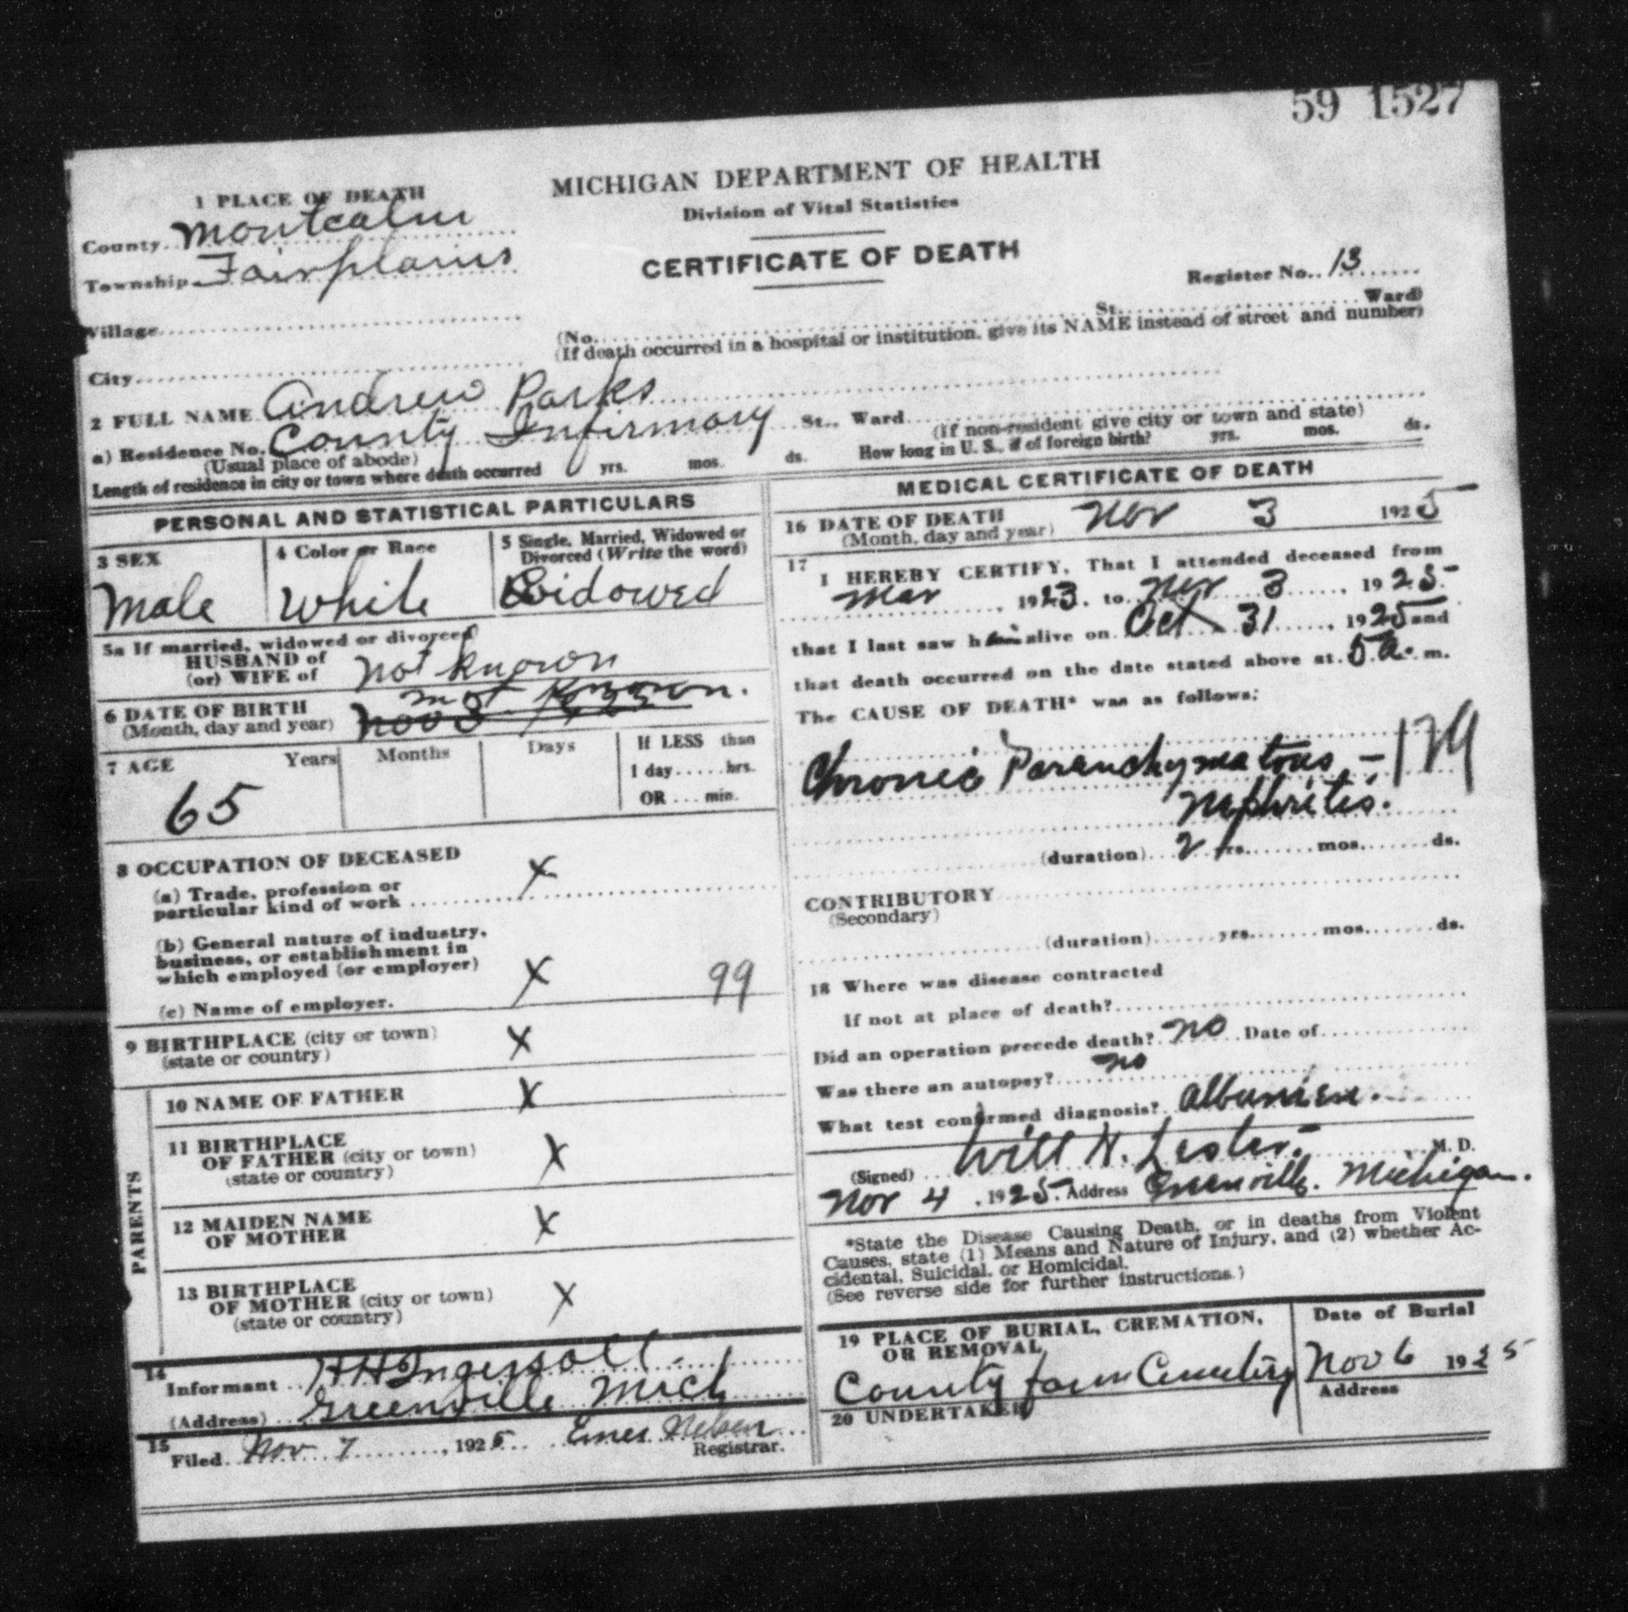 59 1527
MICHIGAN DEPARTMENT OF HEALTH
Division of Vital Statistics
CERTIFICATE OF DEATH
1 PLACE OF DEATH
County Montcalm
Township Fairplains
Register No. 13
Village
(No. St. Ward)
(If death occurred in a hospital or institution, give its NAME instead of street and number)
City
2 FULL NAME Andrew Parks
a) Residence No. County Infirmary St., Ward
(Usual place of abode) (If non-resident give city or town and state)
Length of residence in city or town where death occurred yrs. mos. ds. How long in U. S., if of foreign birth? yrs. mos. ds.
PERSONAL AND STATISTICAL PARTICULARS
3 SEX
Male
4 Color or Race
White
5 Single, Married, Widowed or
Divorced (Write the word)
Widowed
5a If married, widowed or divorced
HUSBAND of
(or) WIFE of not known
6 DATE OF BIRTH not known.
(Month, day and year) Nov 3
7 AGE Years Months Days If LESS than
1 day......hrs.
OR .... min.
65
8 OCCUPATION OF DECEASED
(a) Trade, profession or
particular kind of work X
(b) General nature of industry,
business, or establishment in
which employed (or employer) X 99
(c) Name of employer.
9 BIRTHPLACE (city or town)
(state or country) X
PARENTS
10 NAME OF FATHER X
11 BIRTHPLACE
OF FATHER (city or town)
(state or country) X
12 MAIDEN NAME
OF MOTHER X
13 BIRTHPLACE
OF MOTHER (city or town)
(state or country) X
14
Informant H H Ingersoll
(Address) Greenville Mich
15
Filed Nov 7, 1925 Nelsen
Registrar.
MEDICAL CERTIFICATE OF DEATH
16 DATE OF DEATH
(Month, day and year) Nov 3 1925
17
I HEREBY CERTIFY, That I attended deceased from
Mar, 1923, to Nov 3, 1925
that I last saw him alive on Oct 31, 1925 and
that death occurred on the date stated above at 5 a. m.
The CAUSE OF DEATH* was as follows:
Chronic Parenchymatous - 129
Nephritis.
(duration) 2 yrs. mos. ds.
CONTRIBUTORY
(Secondary)
(duration) yrs. mos. ds.
18 Where was disease contracted
If not at place of death?
Did an operation precede death? No Date of
Was there an autopsy? no
What test confirmed diagnosis?
(Signed) Will H. Lester M. D.
Nov 4, 1925. Address Greenville, Michigan.
*State the Disease Causing Death, or in deaths from Violent
Causes, state (1) Means and Nature of Injury, and (2) whether Ac-
cidental, Suicidal, or Homicidal.
(See reverse side for further instructions.)
19 PLACE OF BURIAL, CREMATION,
OR REMOVAL
County farm Cemetery
Date of Burial
Nov 6 1925
20 UNDERTAKER
Address